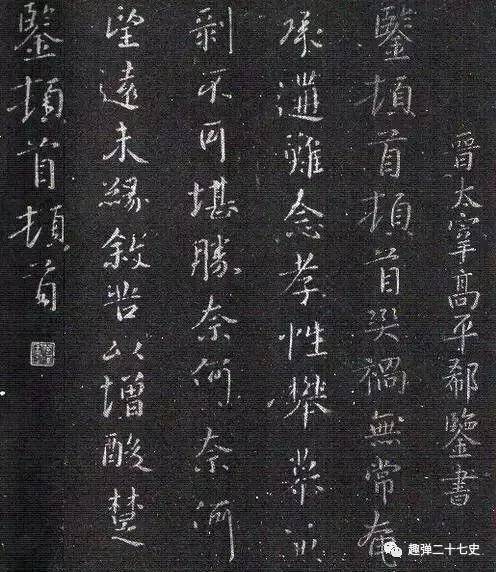 晉太宰高平郗鑒書
鑒頓首頓首災禍無常奄
承遘難念孝性攀慕兼
剝不可堪勝奈何奈何
望遠未緣敘苦以增酸楚
鑒頓首頓首
趣弹二十七史